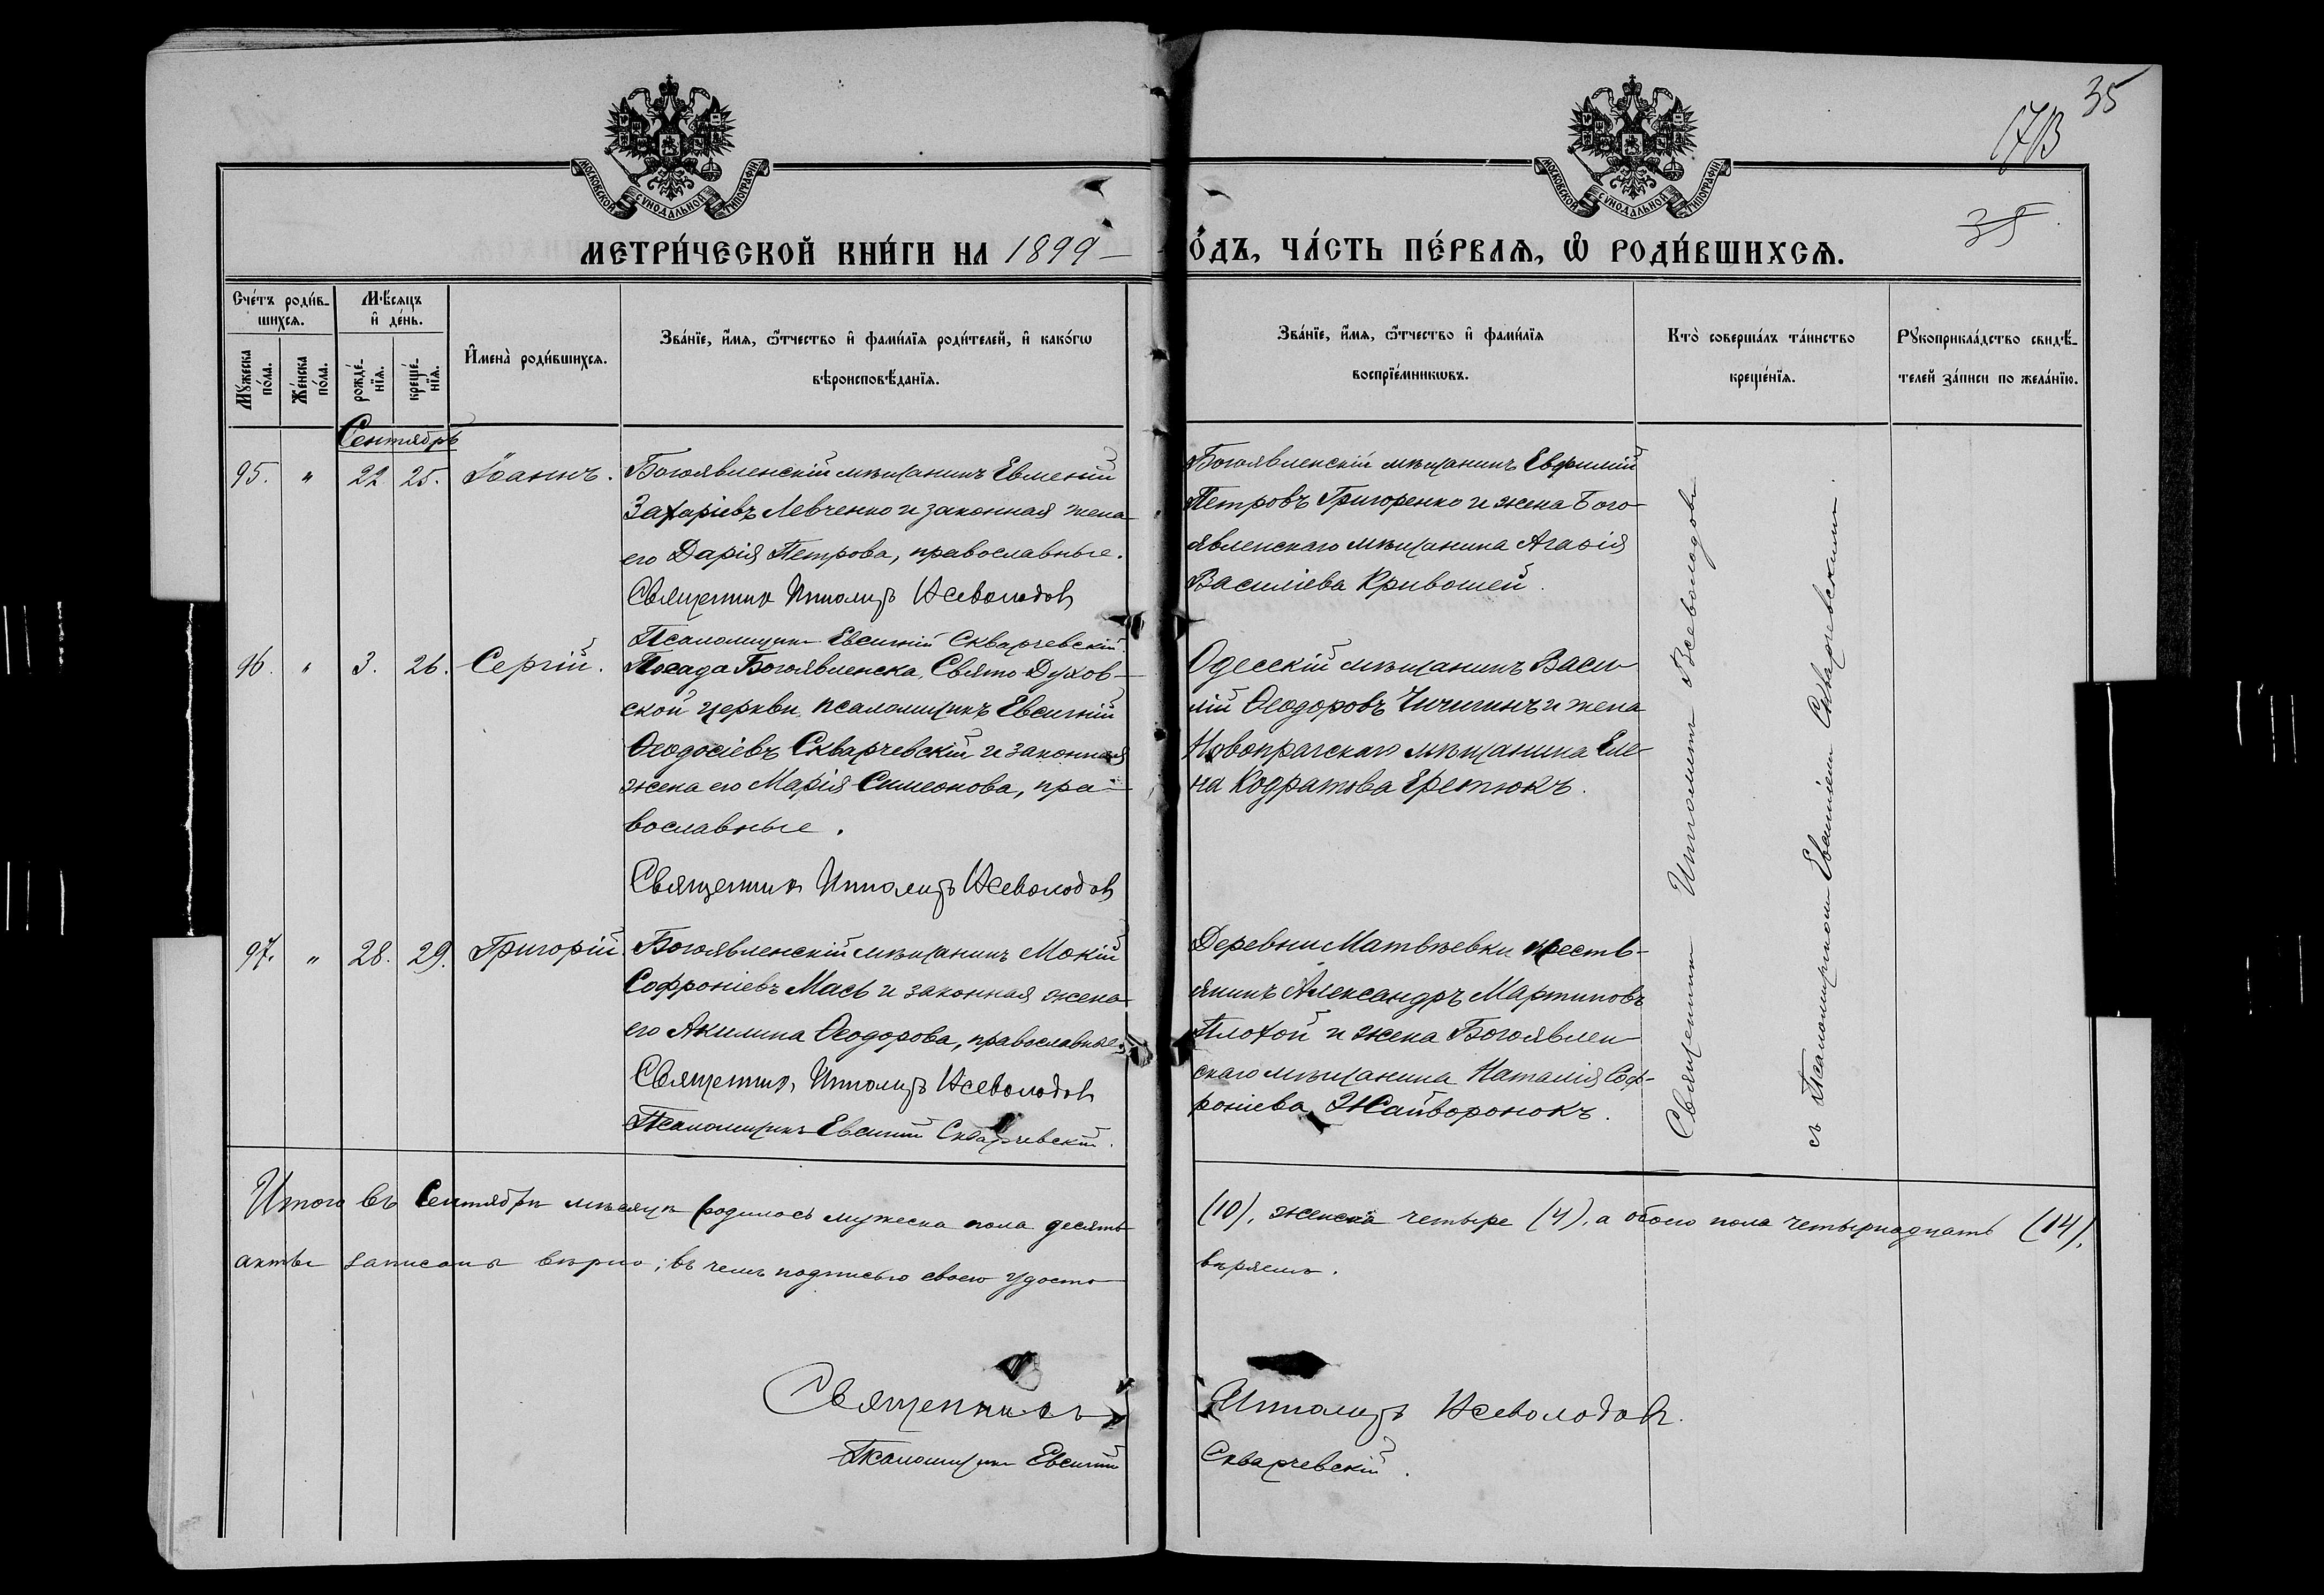 35
17В
35
МОСКОВСКОЙ СѴНОДАЛЬНОЙ ТИПОГРАФІИ
МОСКОВСКОЙ СѴНОДАЛЬНОЙ ТИПОГРАФІИ
МЕТРИ́ЧЕСКОЙ КНИ́ГИ НА 1899 О́ДЪ, ЧА́СТЬ ПЕ́РВАѦ, Ѡ҆ РОДИ́ВШИХСѦ.
Сче́тъ роди́в-
шихсѧ.
Мꙋ́жеска
по́ла.
Же́нска
по́ла.
Мѣ́сѧцъ
и҆ де́нь.
рожде́-
нїѧ.
креще́-
нїѧ.
И҆мена̀ роди́вшихсѧ.
Зва́нїе, и҆́мѧ, ѻ҆́тчество и҆ фами́лїѧ роди́телей, и҆ како́гѡ
вѣроисповѣ́данїѧ.
Зва́нїе, и҆́мѧ, ѻ҆́тчество и҆ фами́лїѧ
воспрїе́мникѡвъ.
Кто̀ соверша́лъ та́инство
креще́нїѧ.
Рꙋкоприкла́дство свидѣ́-
телей за́писи по жела́нїю.
Сентябрь
95. " 22 25. Іоаннъ.
Богоявленскій мѣщанинъ Евменій
Захаріевъ Левченко и законная жена
его Дарія Петрова, православные.
Священникъ Ипполитъ Всеволодовъ
Псаломщикъ Евсигній Скварчевскій.
Богоявленскій мѣщанинъ Евфимій
Петровъ Григоренко и жена Бого-
явленскаго мѣщанина Агафія
Василіева Кривошей.
96. " 3. 26. Сергій.
Посада Богоявленска, Свято Духов-
ской церкви псаломщикъ Евсигній
Ѳеодосіевъ Скварчевскій и законная
жена его Марія Симеонова, пра-
вославные.
Священникъ Ипполитъ Всеволодовъ
Одесскій мѣщанинъ Васи-
лій Ѳеодоровъ Чичигинъ и жена
Новопрагскаго мѣщанина Еле-
на Кодратова Еретюкъ.
97. " 28. 29. Григорій.
Богоявленскій мѣщанинъ Мокій
Софроніевъ Мась и законная жена
его Акилина Ѳеодорова, православные.
Священникъ Ипполитъ Всеволодовъ
Псаломщикъ Евсигній Скварчевскій.
Деревни Матвѣевки кресть-
янинъ Александръ Мартиновъ
Плохой и жена Богоявлен-
скаго мѣщанина Наталія Соф-
роніева Жайворонокъ.
Священникъ Ипполитъ Всеволодовъ
съ Псаломщикомъ Евсигніемъ Скварчевскимъ.
Итого въ Сентябрѣ мѣсяцѣ родилось мужеска пола десять (10), женска четыре (4), а обоего пола четырнадцать (14),
акты записаны вѣрно; въ чемъ подписью своею удосто вѣряемъ.
Священникъ Ипполитъ Всеволодовъ.
Псаломщикъ Евсигній Скварчевскій.